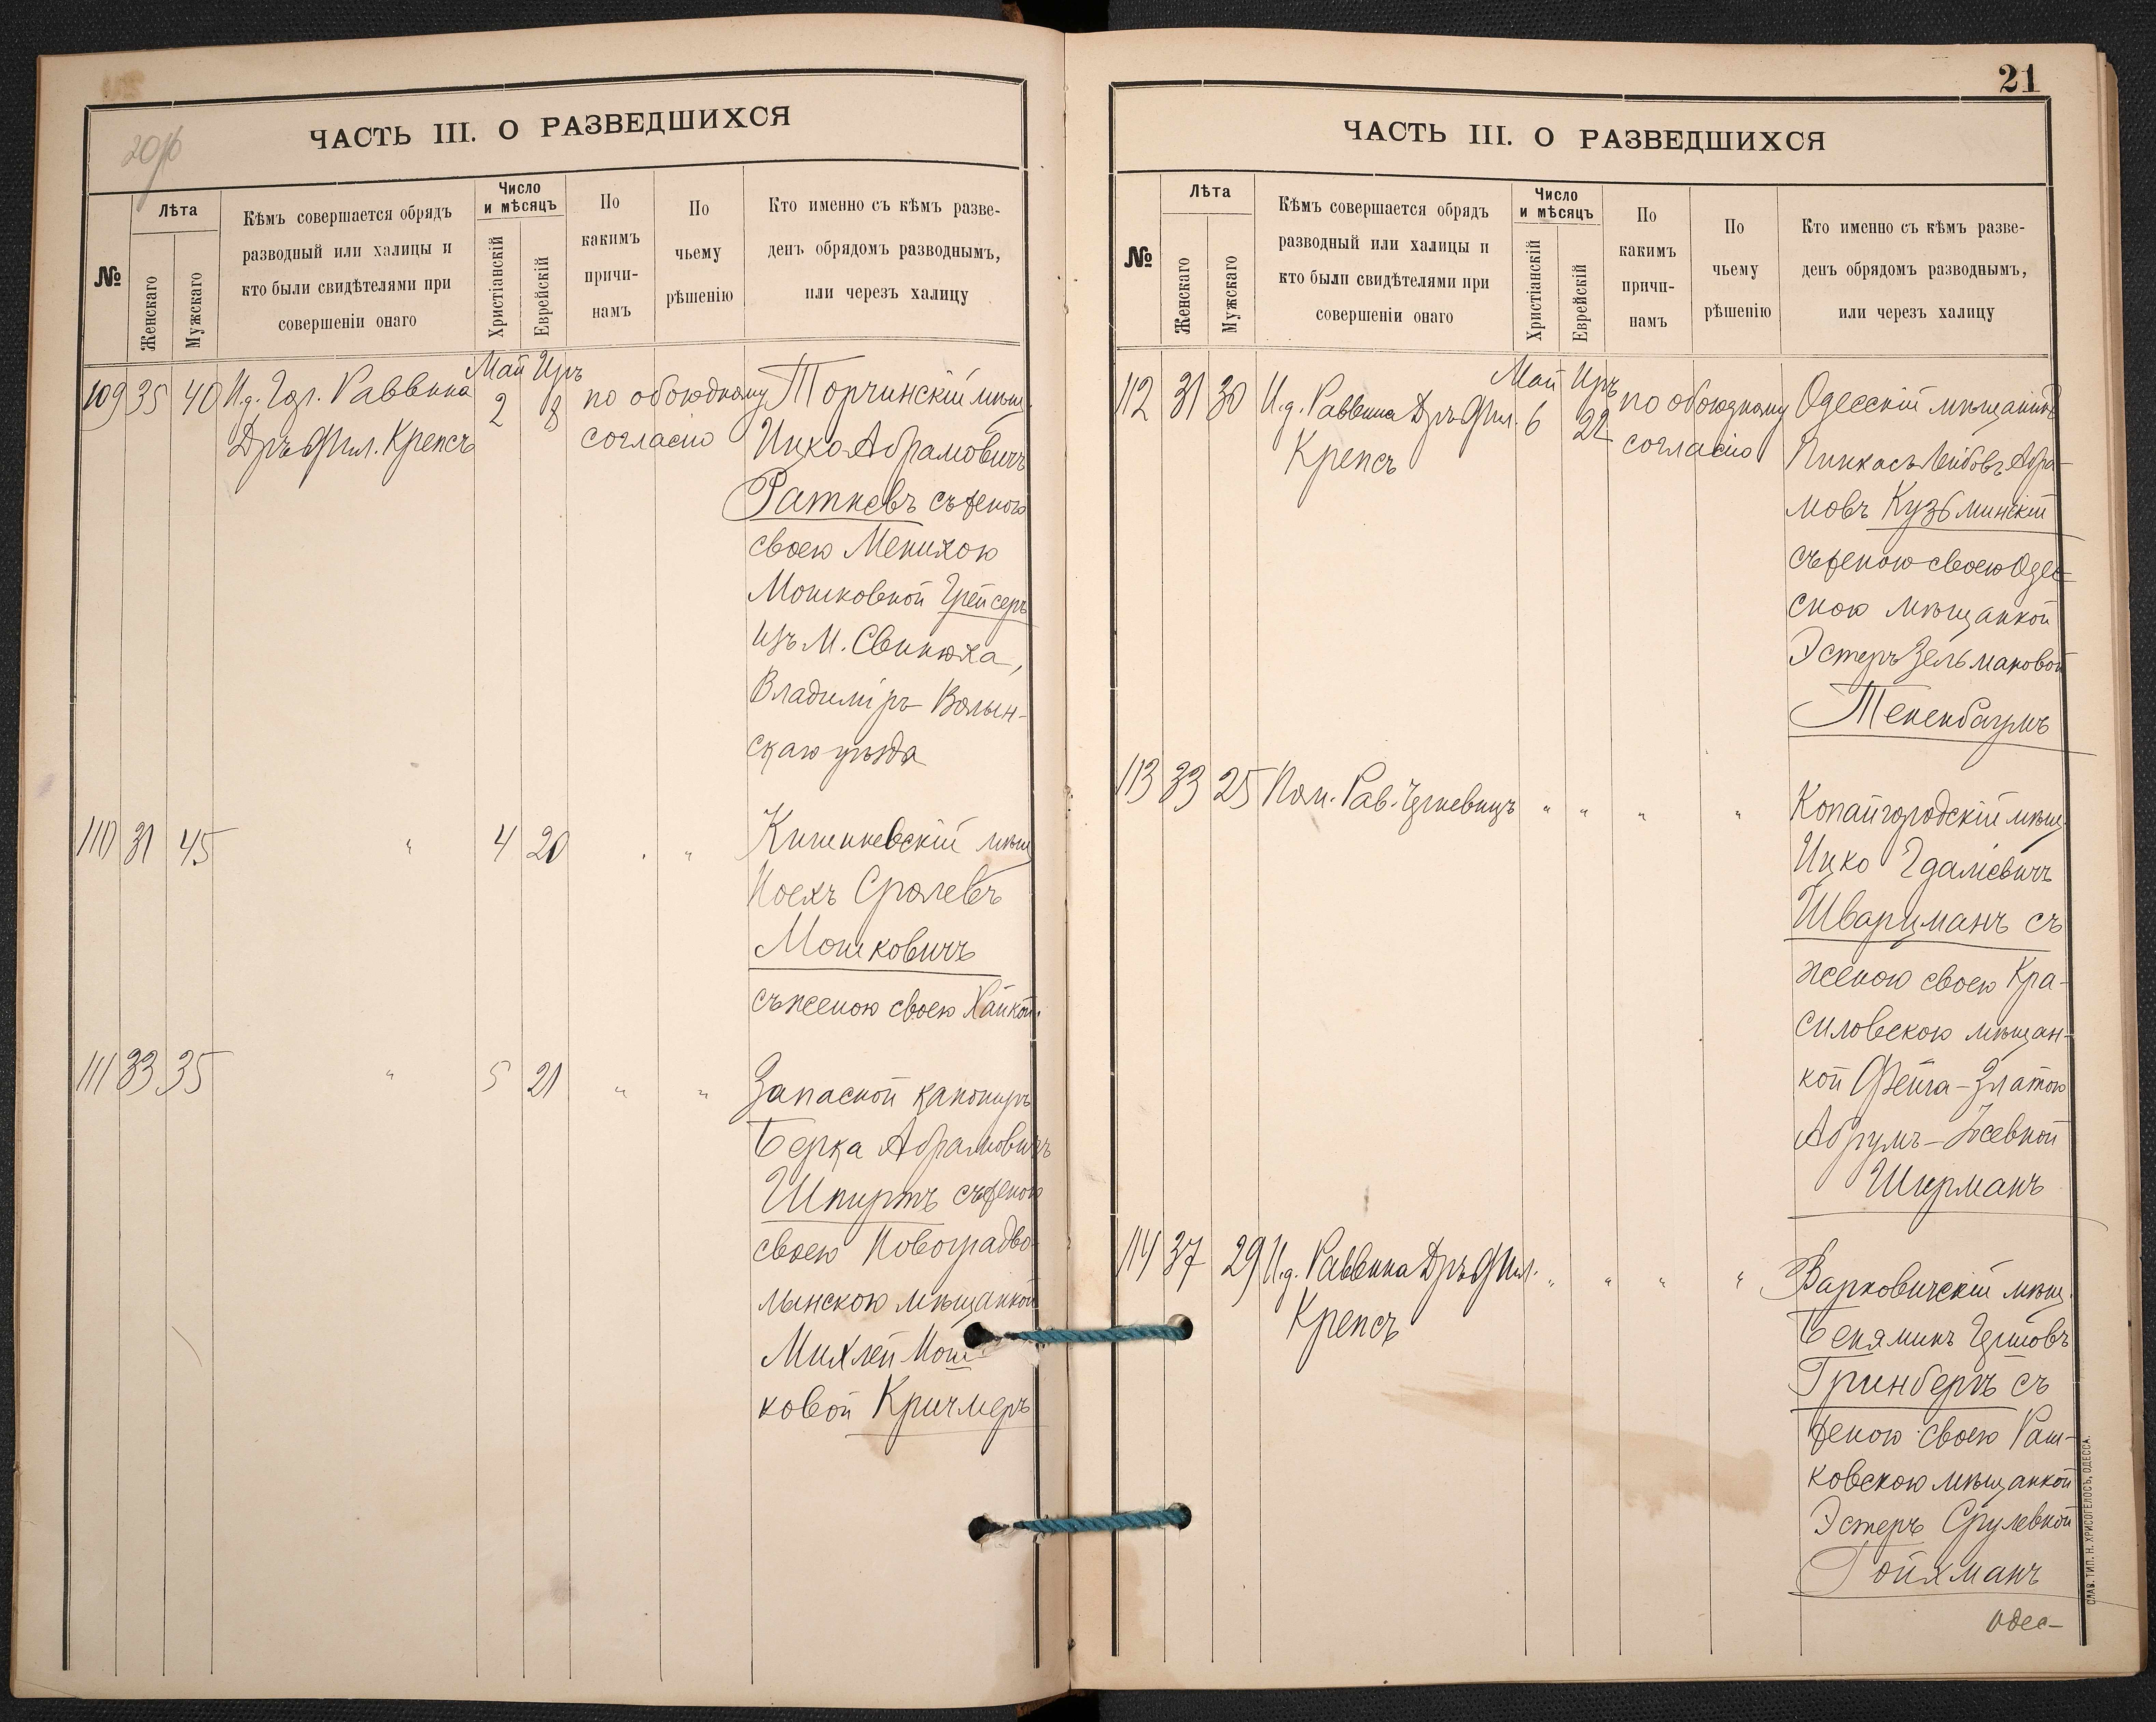 20об
ЧАСТЬ III. О РАЗВЕДШИХСЯ
№
Лѣта
Женскаго
Мужскаго
Кѣмъ совершается обрядъ
разводный или халицы и
кто были свидѣтелями при
совершеніи онаго
Число
и мѣсяцъ
Христіанскій
Еврейскій
По
какимъ
причи-
намъ
По
чьему
рѣшенію
Кто именно съ кѣмъ разве-
денъ обрядомъ разводнымъ,
или черезъ халицу
Май Иръ
109 35 40 И.д. Раввина 2 18 по обоюдному Торчинскій мѣщ.
Дръ Фил. Крепсъ согласію Ицко Абрамовичъ
Ратневъ съ женою
своею Менихою
Мошковной Грейсеръ
изъ М. Свинюха,
Владиміръ Волын-
скаго уѣзда
110 31 45 " 4 20 " " Кишиневскій мѣщ
Мошковичъ
съ женою своею Хайкой.
111 33 35 " 5 21 " " Запасной канониръ
Берка Абрамовичъ
Шпиртъ съ женою
своею Новоградво-
лынскою мѣщанкой
Михлей Мош-
ковой Кричмеръ
21
ЧАСТЬ III. О РАЗВЕДШИХСЯ
№
Лѣта
Женскаго
Мужскаго
Кѣмъ совершается обрядъ
разводный или халицы и
кто были свидѣтелями при
совершеніи онаго
Число
и мѣсяцъ
Христіанскій
Еврейскій
По
какимъ
причи-
намъ
По
чьему
рѣшенію
Кто именно съ кѣмъ разве-
денъ обрядомъ разводнымъ,
или черезъ халицу
Май Иръ
112 31 30 И.д. Раввина Дръ Фил. 6 22 по обоюдному Одесскій мѣщанинъ
Крепсъ согласію Пинкасъ Лейбовъ Абра-
мовъ Кузьминскій
съ женою своею Одес-
скою мѣщанкой
Эстеръ Зельмановой
Тененбаумъ
113 33 25 Пом. Рав. " " " " Копайгородскій мѣщ.
Ицко Гдаліевичъ
Шварцманъ съ
женою своею Кра-
силовскою мѣщан-
кой Фейга-Златою
Абрумъ-Іосевной
Ширманъ
114 37 29 И.д. Раввина Дръ Фил. " " " " Варковичскій мѣщ.
Крепсъ Беняминъ
Гринбергъ съ
женою своею Раш-
ковскою мѣщанкой
Эстеръ Срулевной
Гойхманъ
Одес-
СЛАВ. ТИП. Н. ХРИСОГЕЛОСЪ, ОДЕССА.